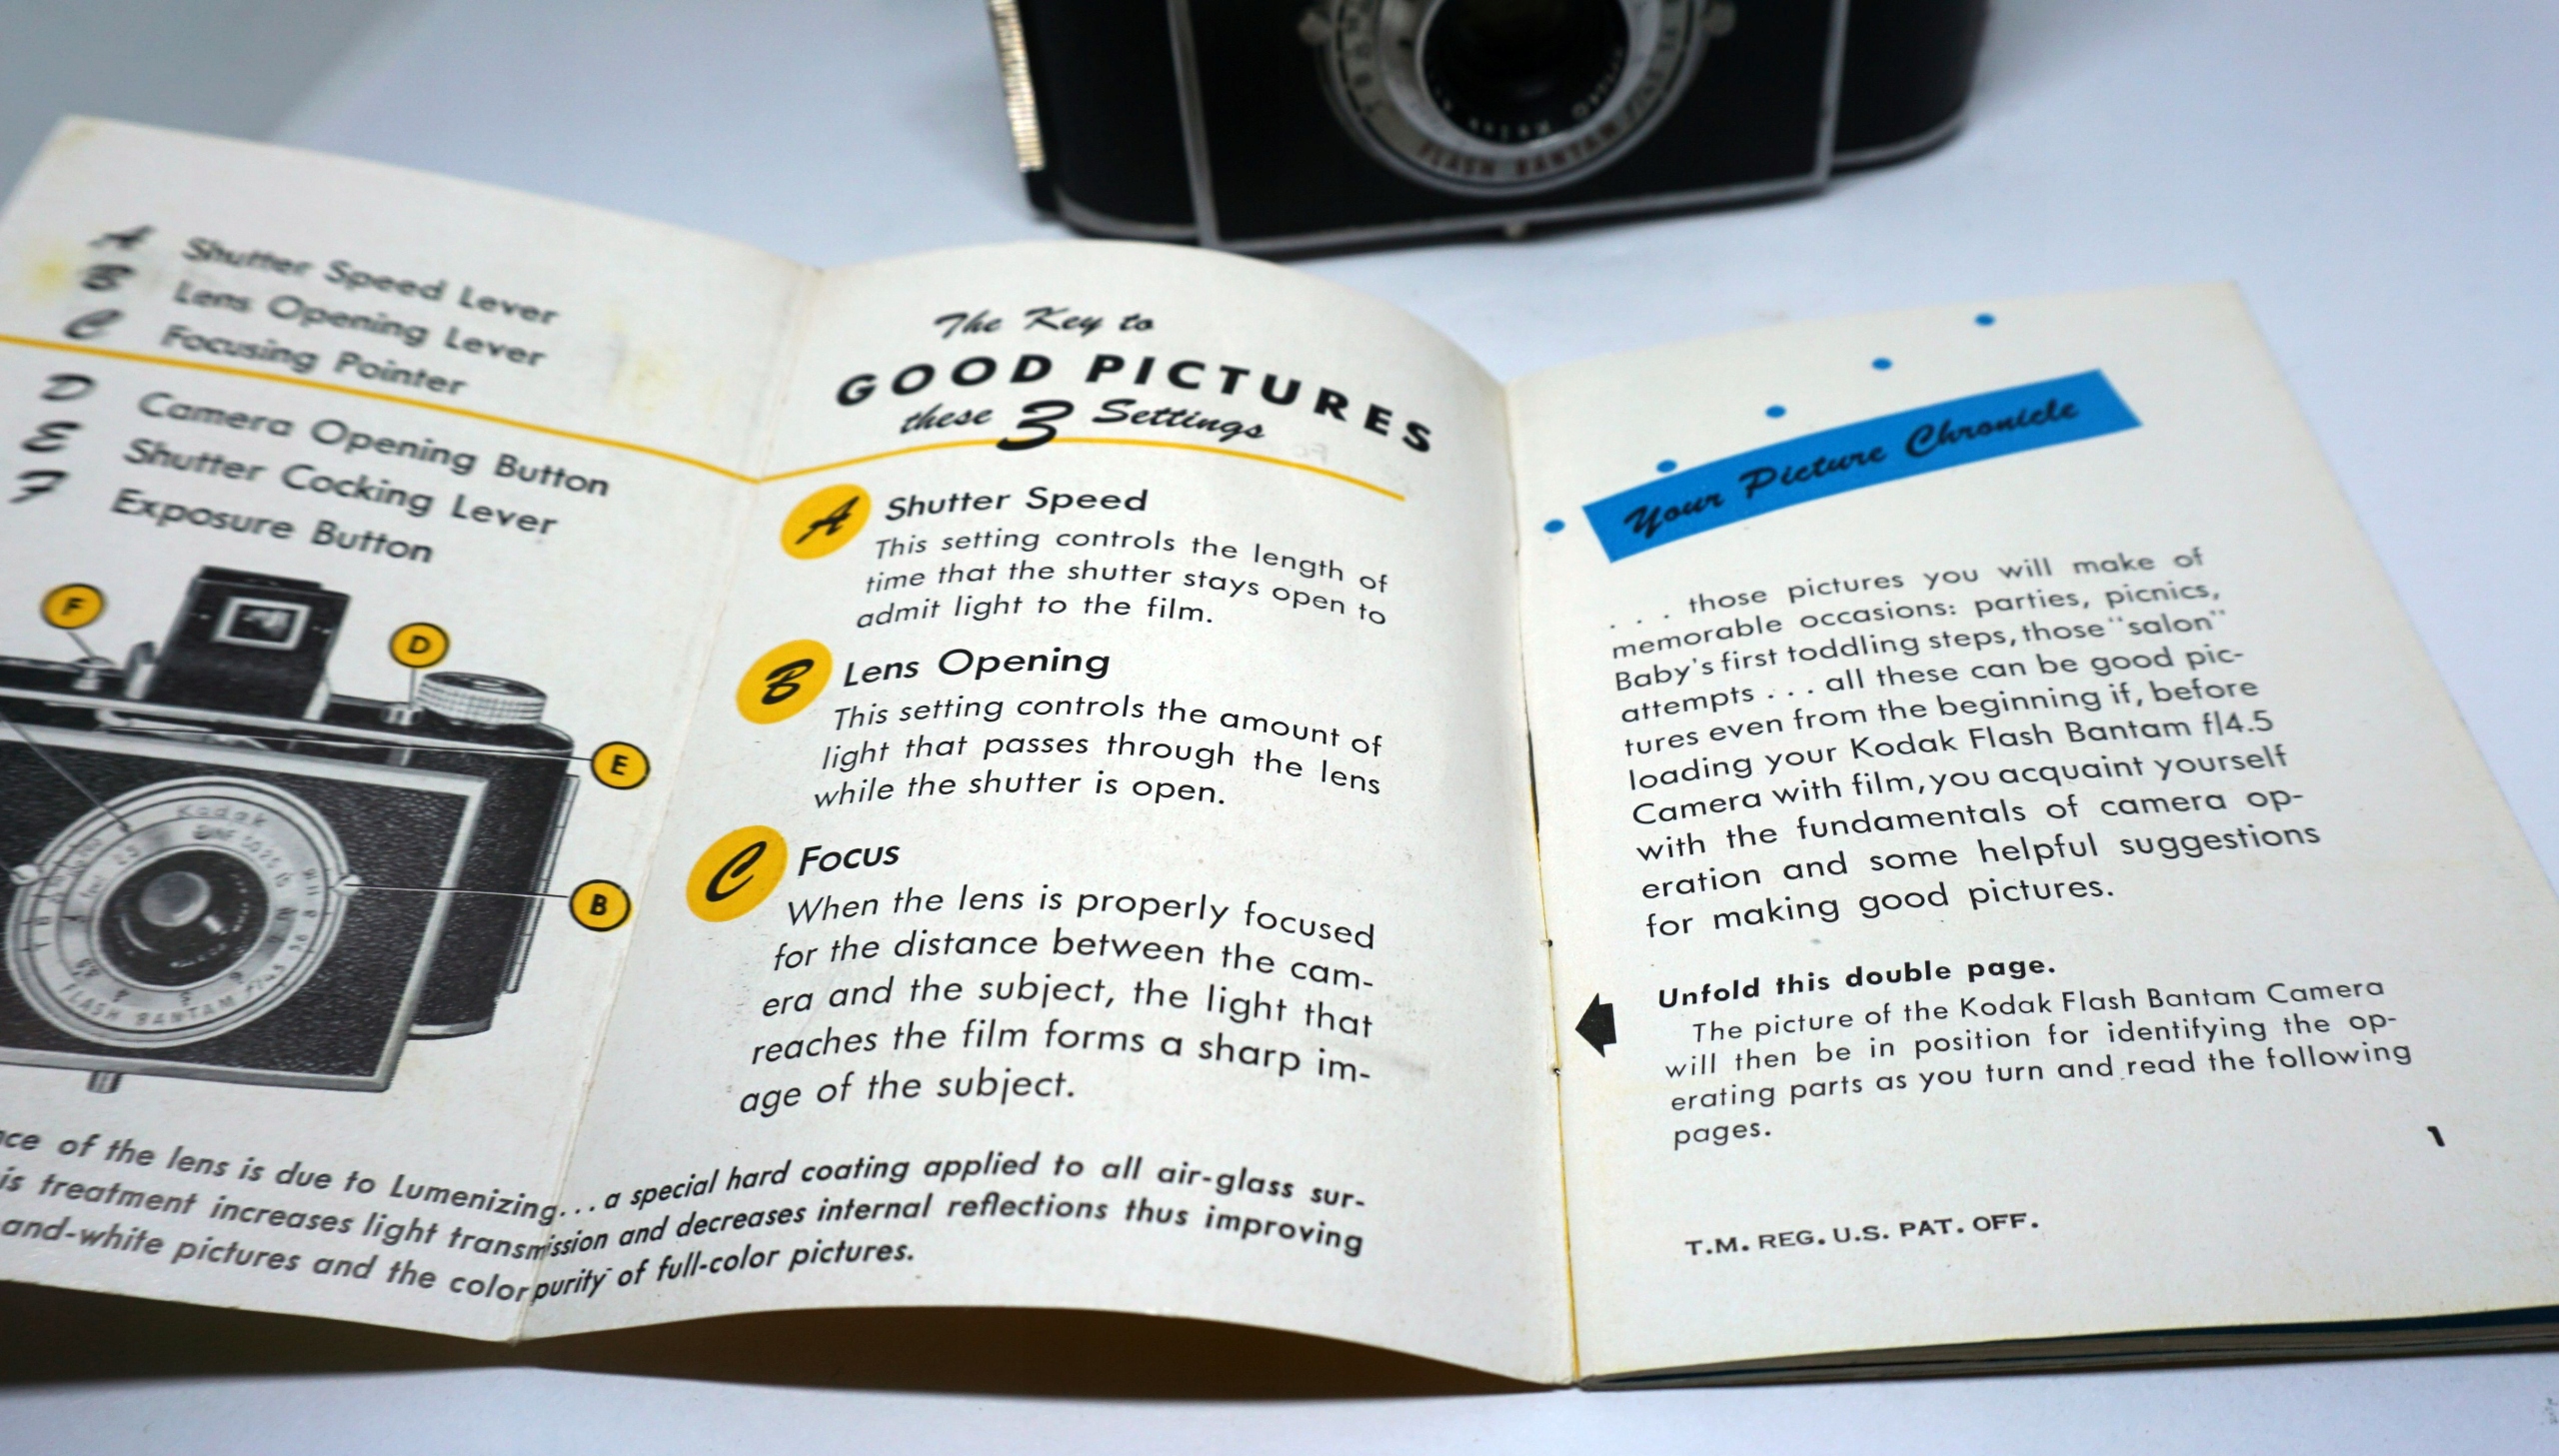 A Shutter Speed Lever
B Lens Opening Lever
C Focusing Pointer
D Camera Opening Button
E Shutter Cocking Lever
F Exposure Button
F
D
E
B
Kodak
FLASH BANTAM f/4.5
of the lens is due to Lumenizing... a special hard coating applied to all air-glass sur-
treatment increases light transmission and decreases internal reflections thus improving
and-white pictures and the color purity of full-color pictures.
The Key to
GOOD PICTURES
these 3 Settings
A Shutter Speed
This setting controls the length of
time that the shutter stays open to
admit light to the film.
B Lens Opening
This setting controls the amount of
light that passes through the lens
while the shutter is open.
C Focus
When the lens is properly focused
for the distance between the cam-
era and the subject, the light that
reaches the film forms a sharp im-
age of the subject.
Your Picture Chronicle
. . . those pictures you will make of
memorable occasions: parties, picnics,
Baby's first toddling steps, those "salon"
attempts . . . all these can be good pic-
tures even from the beginning if, before
loading your Kodak Flash Bantam f/4.5
Camera with film, you acquaint yourself
with the fundamentals of camera op-
eration and some helpful suggestions
for making good pictures.
Unfold this double page.
The picture of the Kodak Flash Bantam Camera
will then be in position for identifying the op-
erating parts as you turn and read the following
pages.
1
T.M. REG. U.S. PAT. OFF.
FLASH BANTAM f/4.5